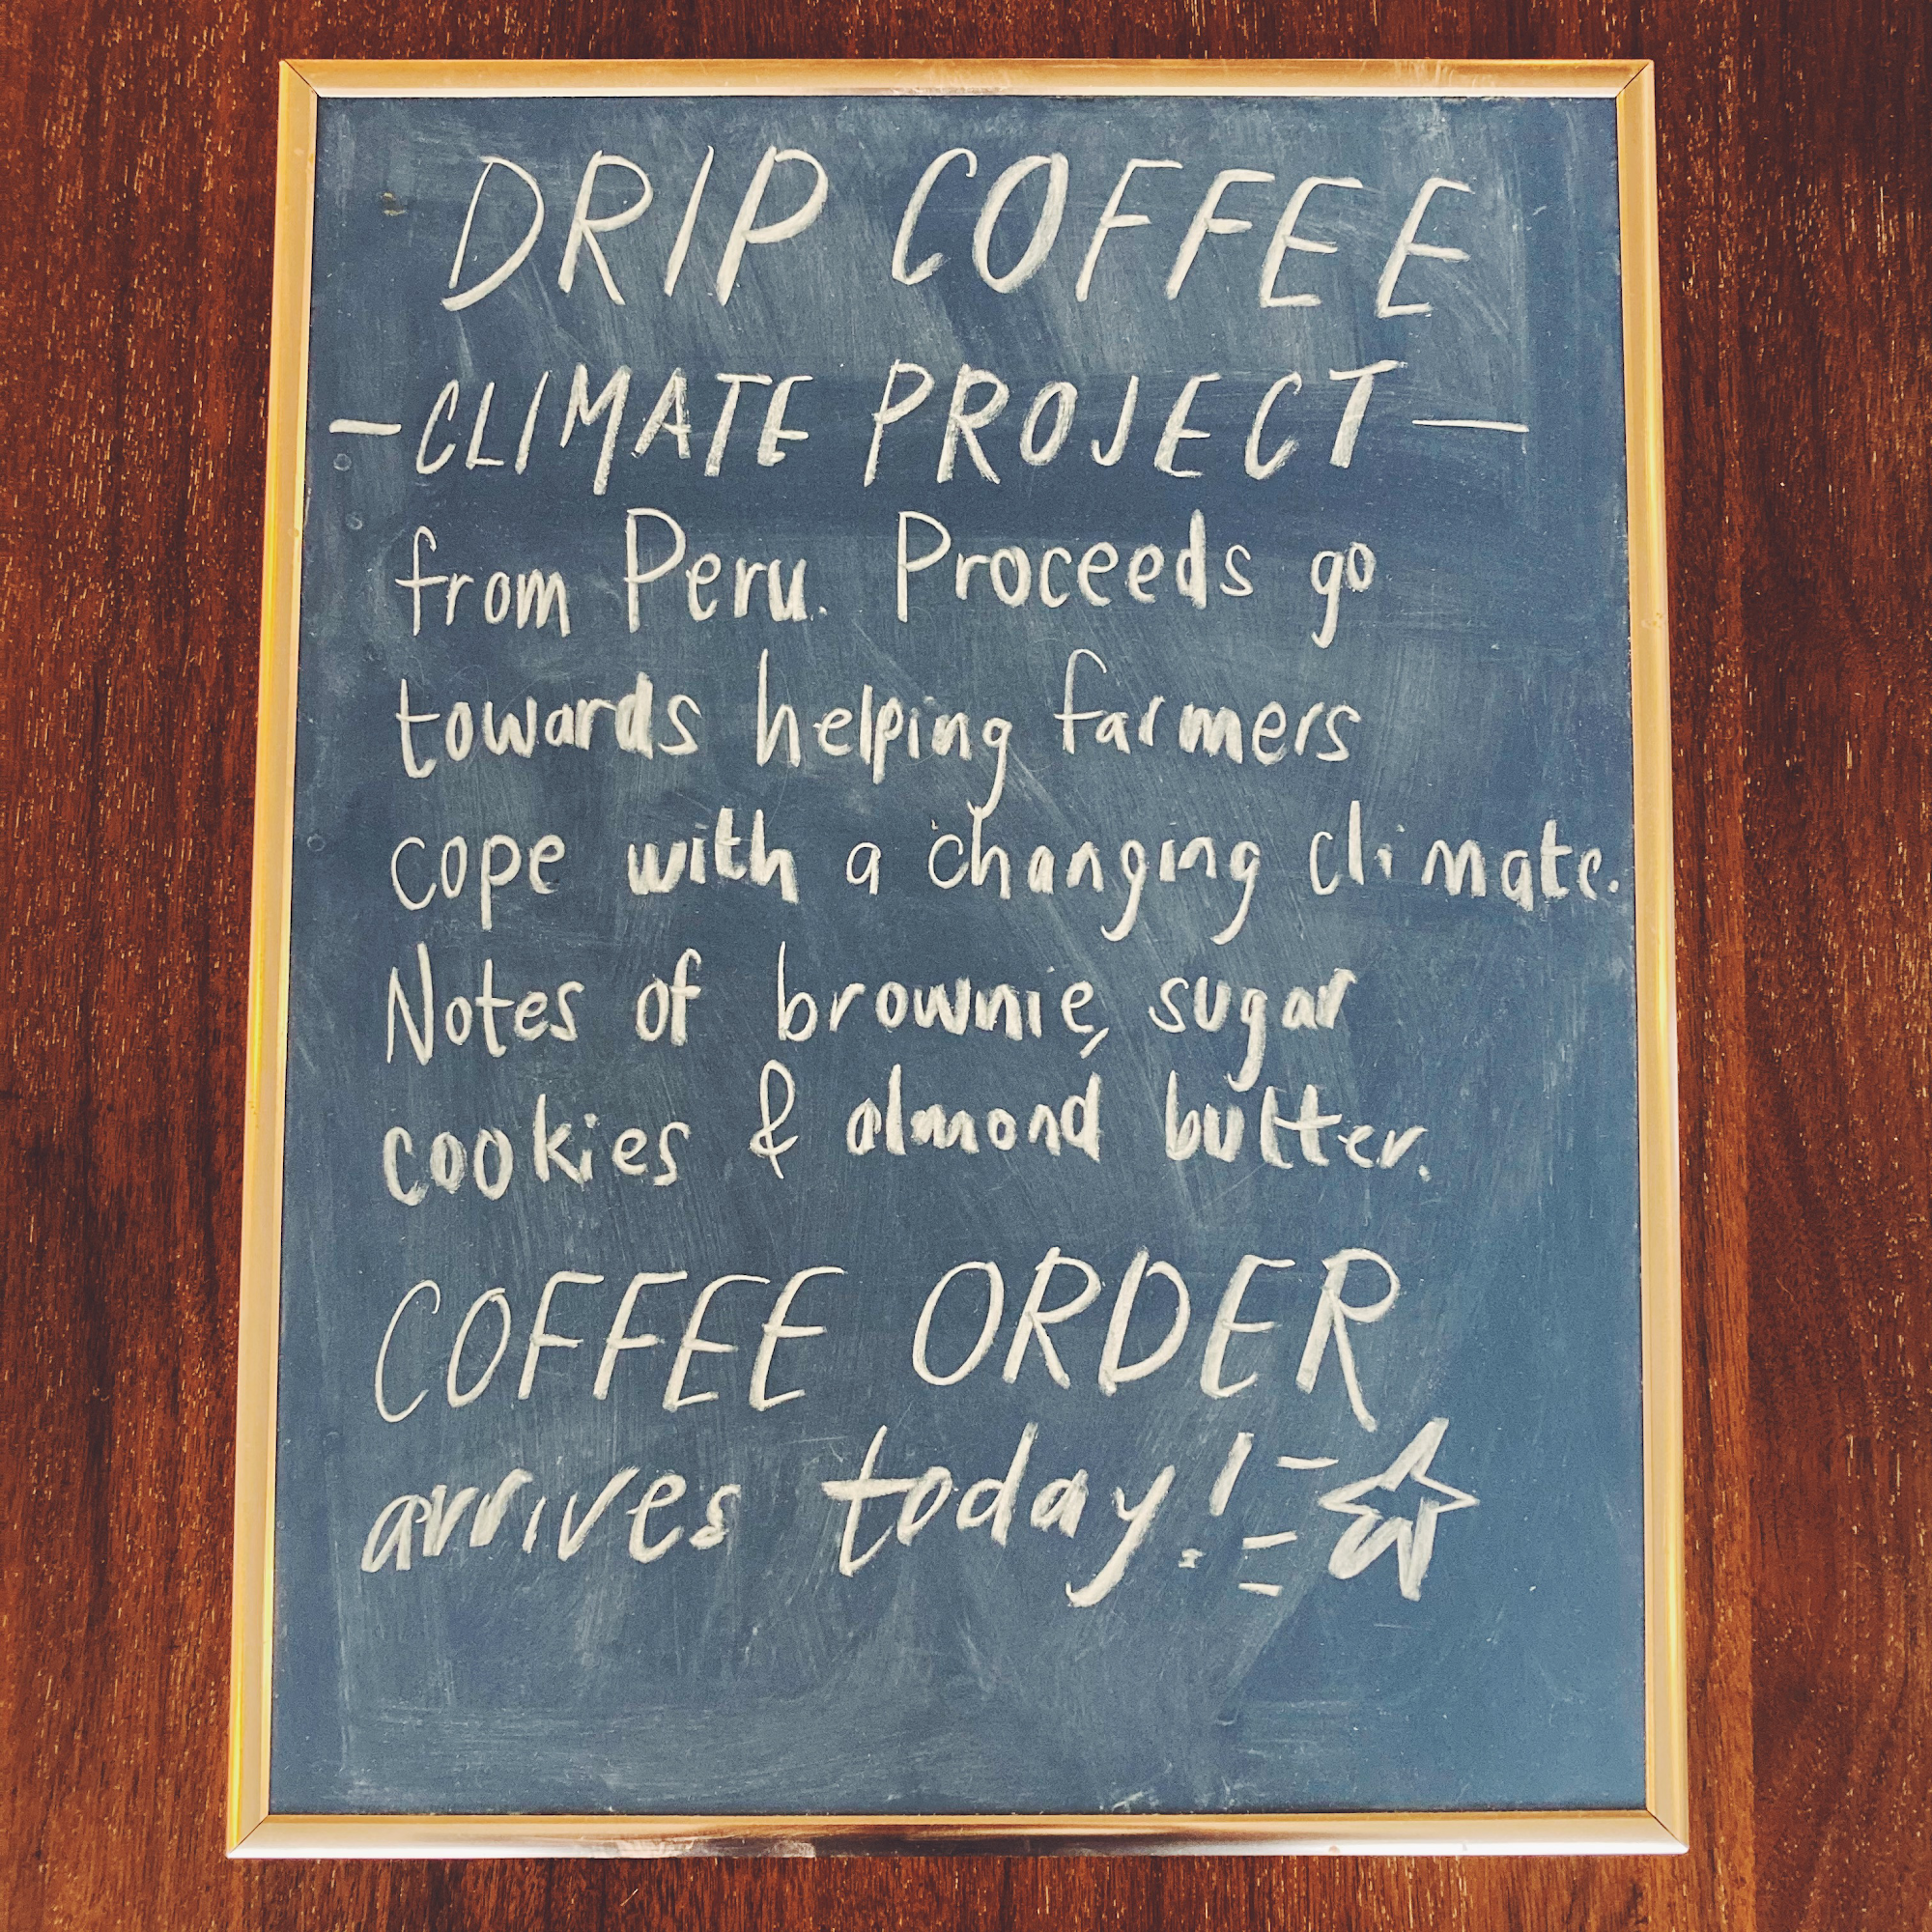 DRIP COFFEE
-CLIMATE PROJECT-
from Peru. Proceeds go
towards helping farmers
cope with a changing climate.
Notes of brownie, sugar
cookies & almond butter.
COFFEE ORDER
arrives today!